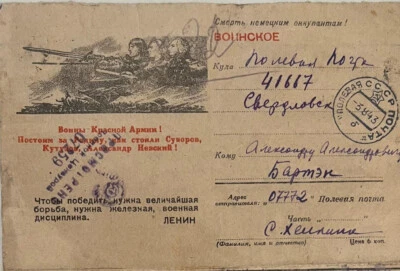 Смерть немецким оккупантам!
ВОИНСКОЕ
Куда Полевая Почта
41667
Свердловск
Воины Красной Армии!
Постоим за отчизну, как стояли Суворов,
Кутузов, Александр Невский!
Чтобы победить, нужна величайшая
борьба, нужна железная, военная
дисциплина. ЛЕНИН
ПОЛЕВАЯ ПОЧТА
СССР
Кому Александру Александровичу
Бартэк
Адрес
отправителя: 07772 - Полевая почта
Часть
С. Хелпина
(Фамилия, имя и отчество) Цена 6 коп.